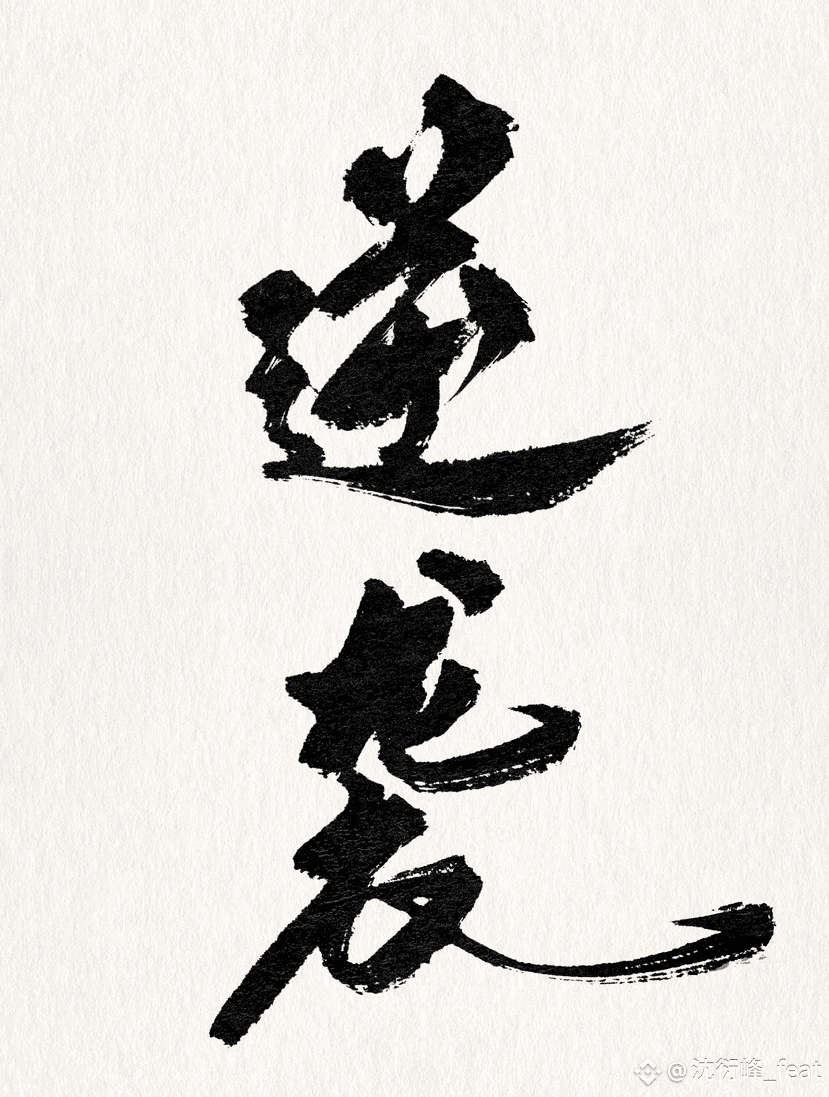 逆袭
@沈衍峰_feat